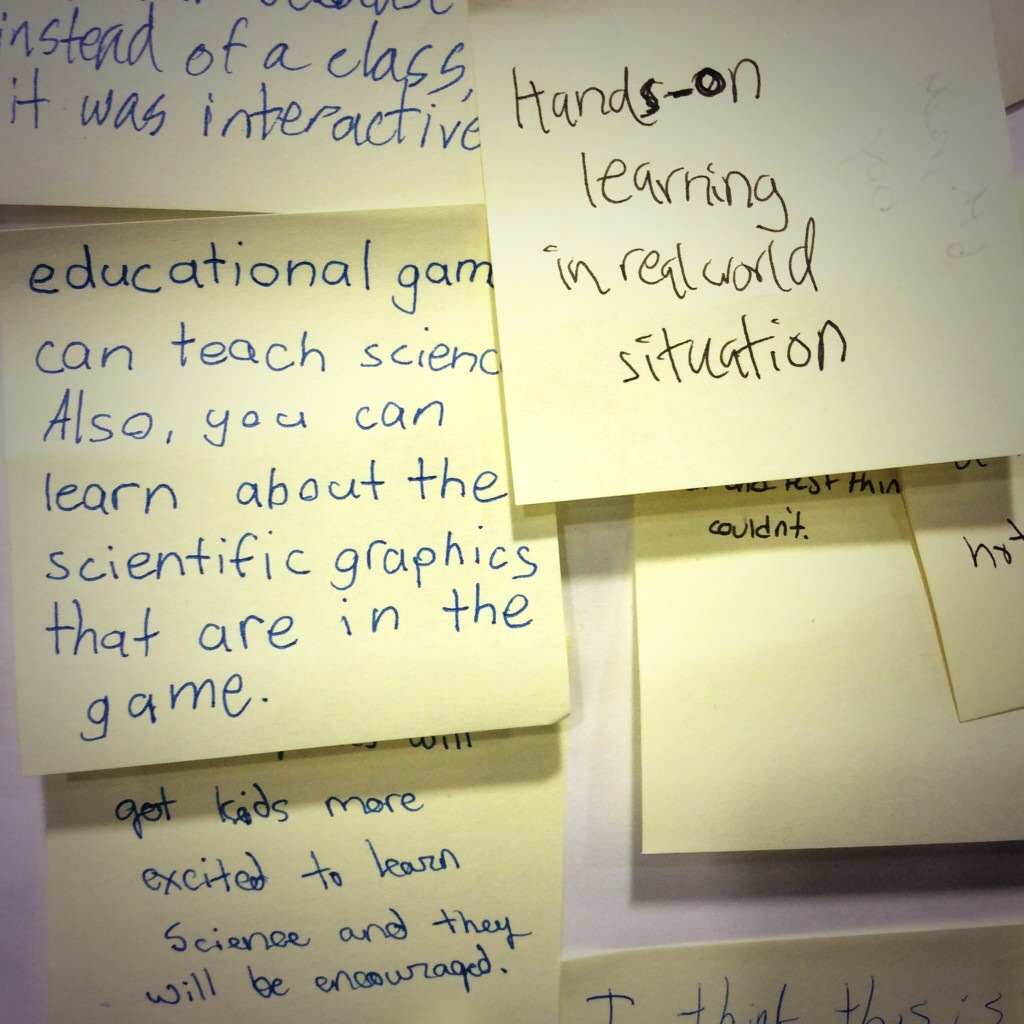 instead of a class,
it was interactive
Hands-on
learning
in real world
situation
educational gam
can teach scienc
Also, you can
learn about the
scientific graphics
that are in the
game.
couldn't.
not
will
get kids more
excited to learn
Science and they
will be encouraged.
I think this is